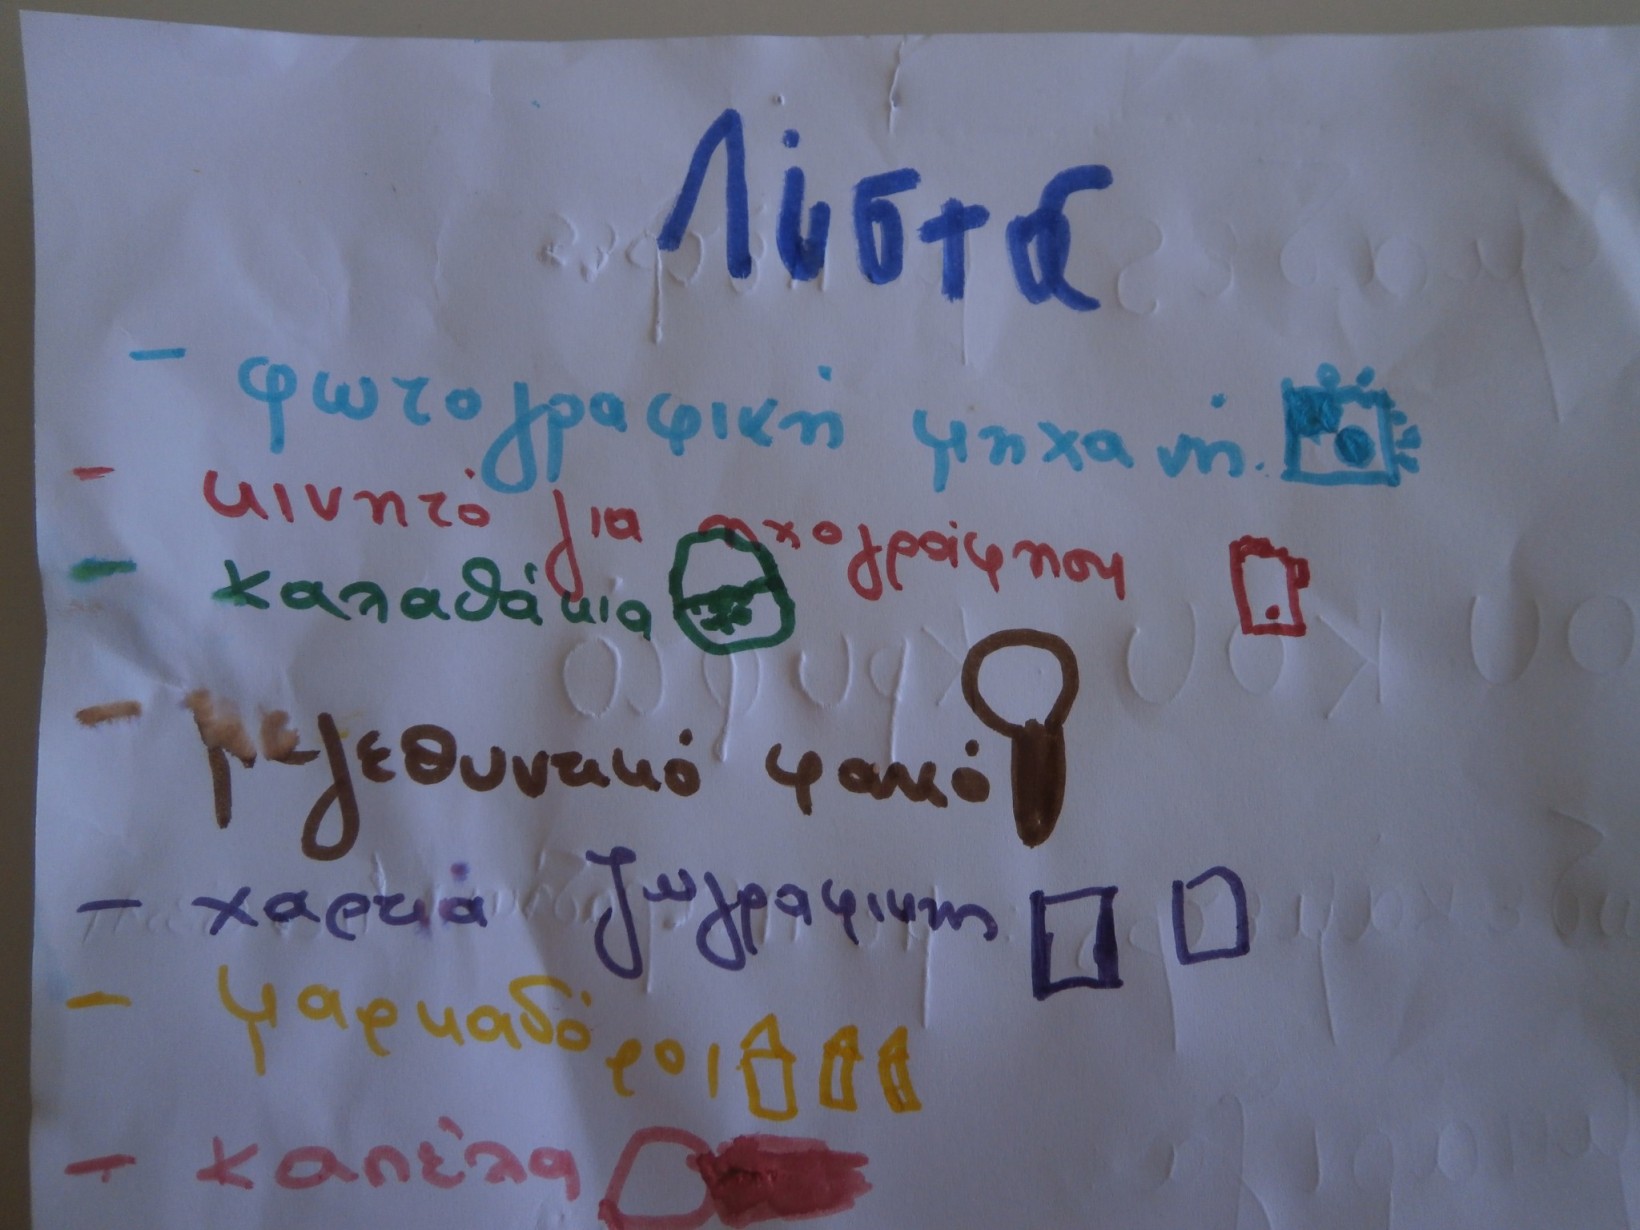 Λίστα
- φωτογραφική μηχανή.
- κινητό για ηχογράφηση
- καλαθάκια
- μεγεθυντικό φακό
- χαρτιά ζωγραφικής
- μαρκαδόροι
- καπέλα